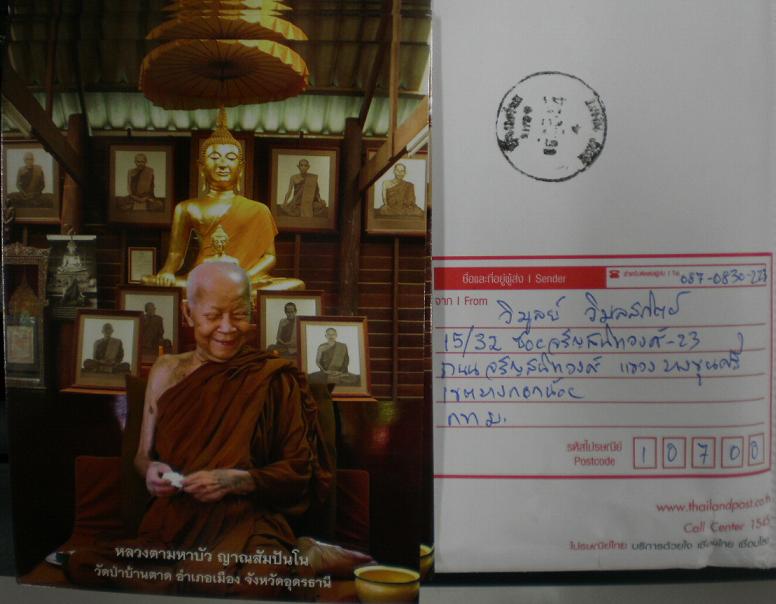 หลวงตามหาบัว ญาณสัมปันโน
วัดป่าบ้านตาด อำเภอเมือง จังหวัดอุดรธานี
ชื่อและที่อยู่ผู้ส่ง | Sender
087-0830-223
จาก | From
วิมูลย์
15/32 ซอยจรัญสนิทวงศ์-23
ถนน จรัญสนิทวงศ์ แขวง บางขุนศรี
เขตบางกอกน้อย
กทม.
รหัสไปรษณีย์
Postcode
10700
www.thailandpost.co.th
Call Center 1545
ไปรษณีย์ไทย บริการด้วยใจ